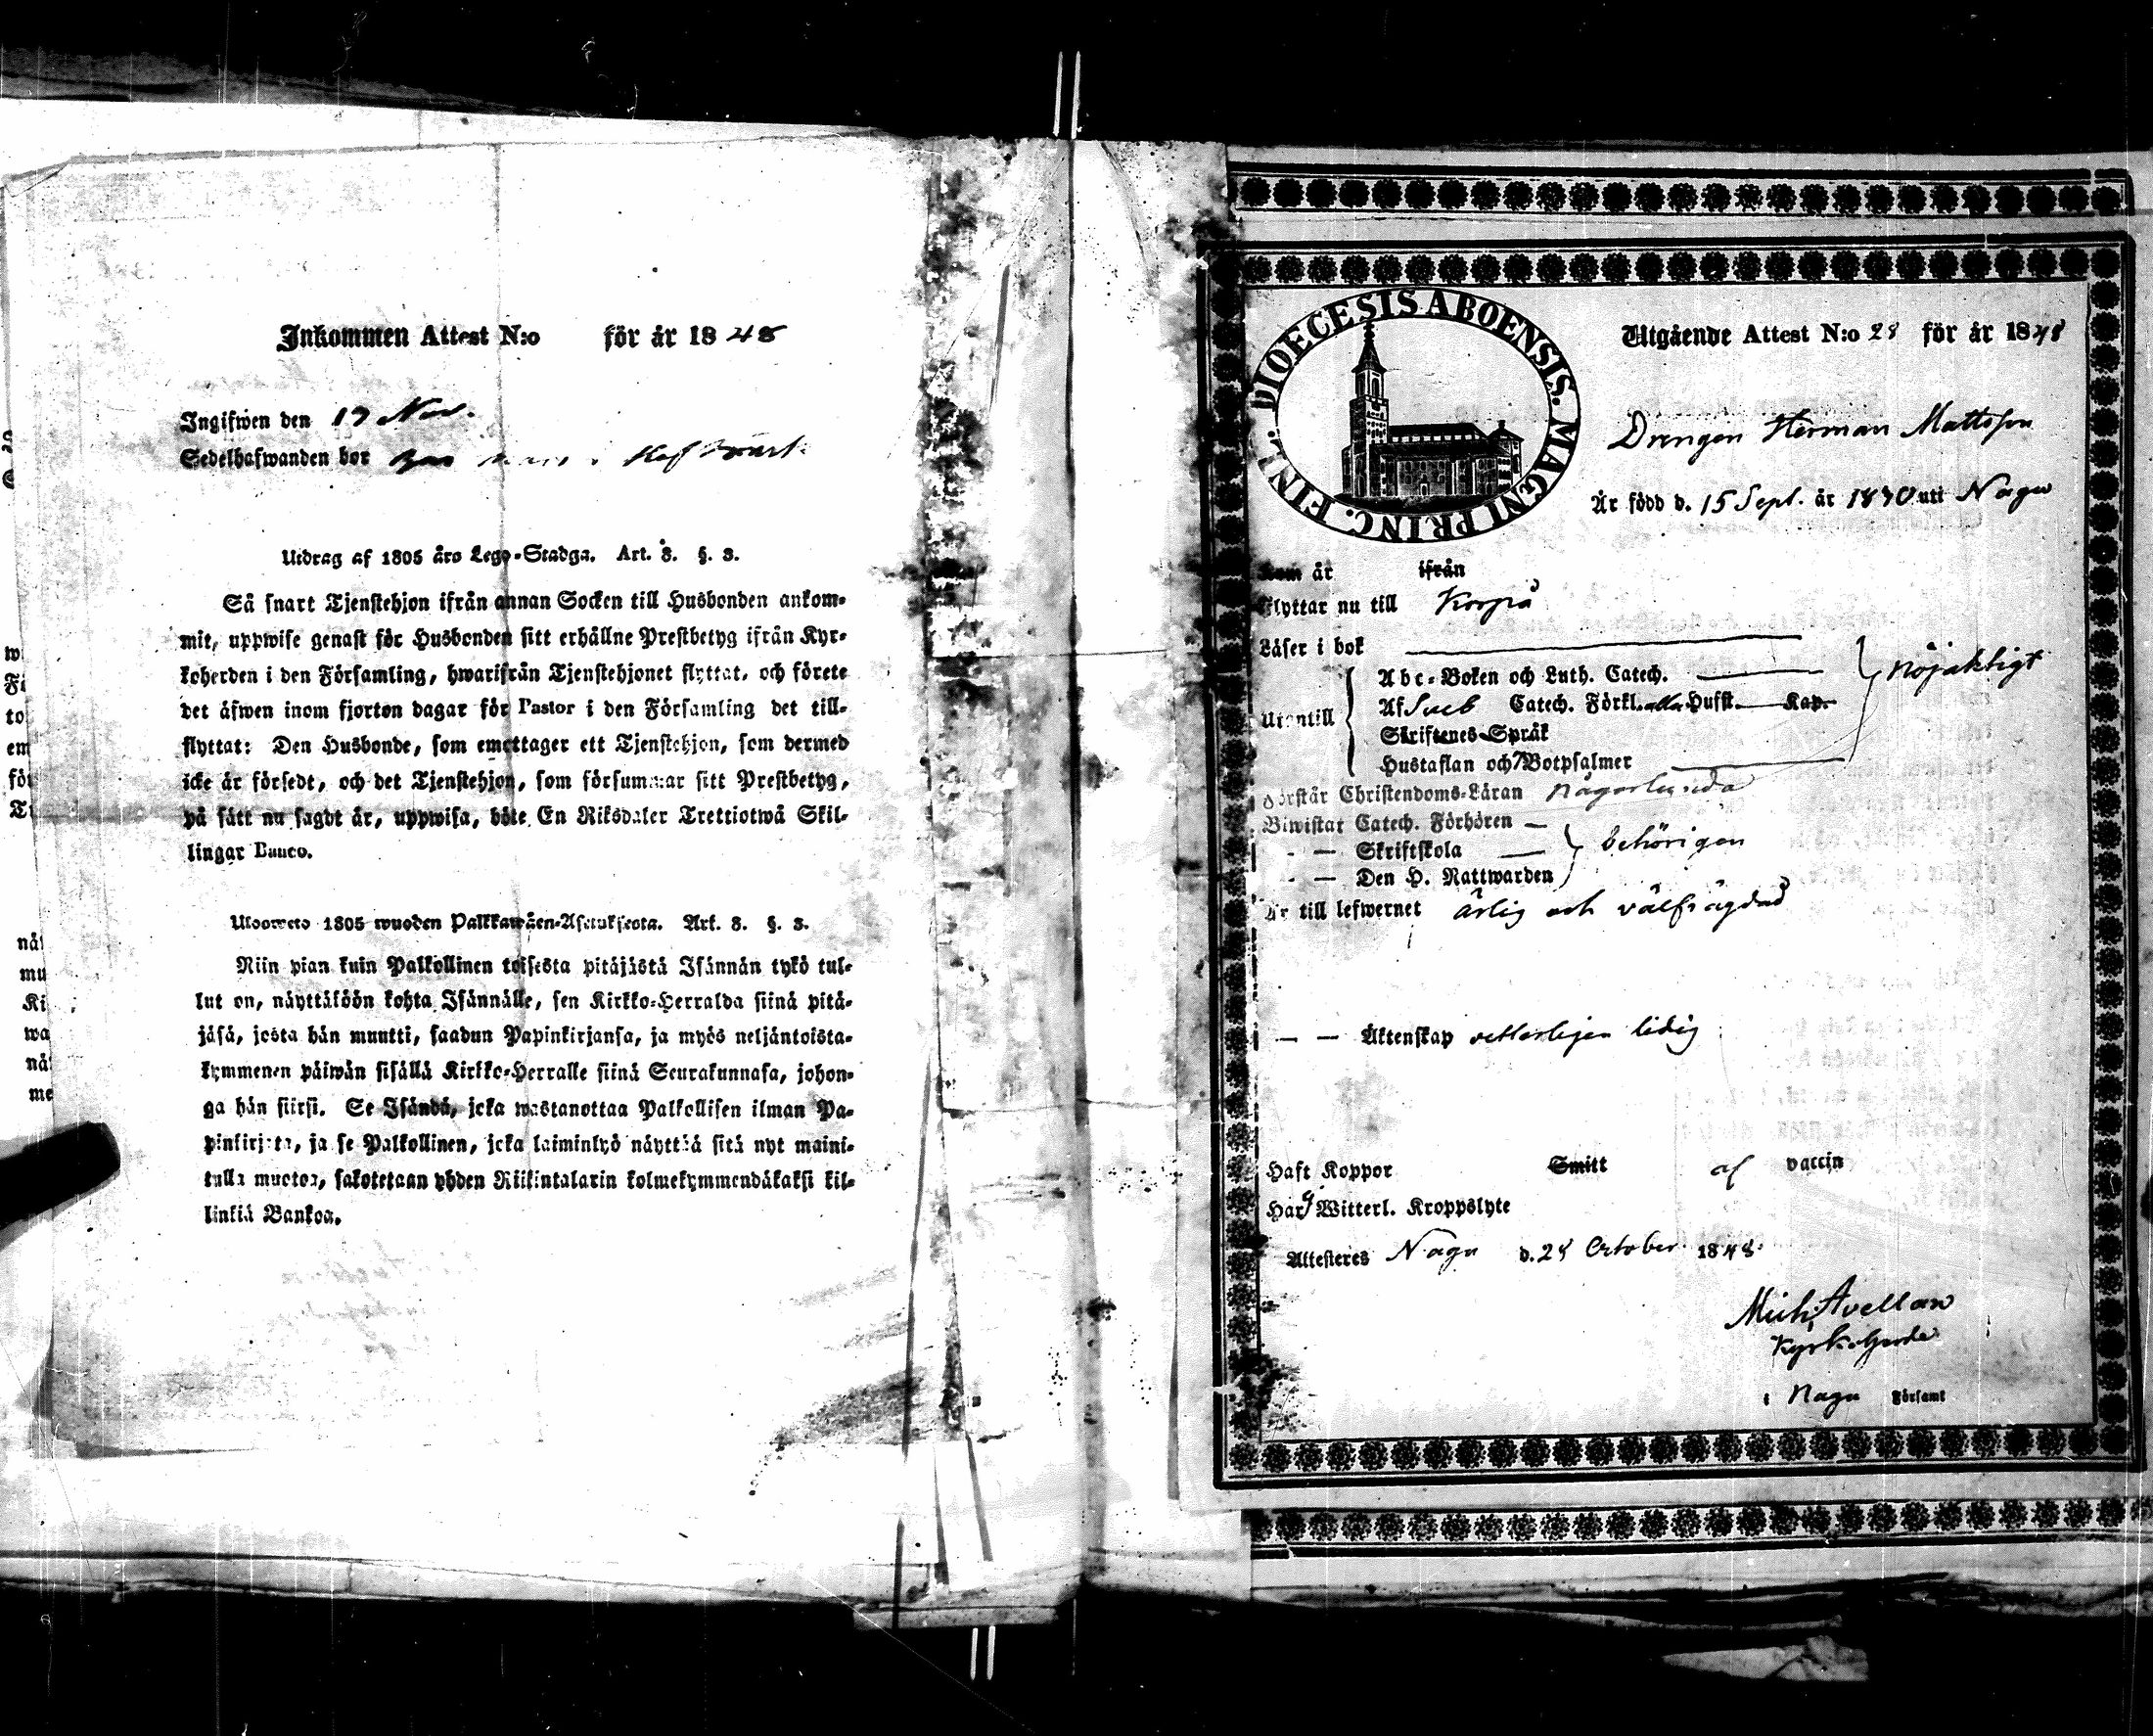 Inkommen Attest N:o för år 1848
Ingifwen den 17 Nov.
Sedelhafwanden bor
Utdrag af 1805 års Lego-Stadga. Art. 8. §. 3.
Så snart Tjenstehjon ifrån annan Socken till Husbonden ankom-
mit, uppwise genast för Husbonden sitt erhållne Prestbetyg ifrån Kyr-
koherden i den Församling, hwarifrån Tjenstehjonet flyttat, och förete
det äfwen inom fjorton dagar för Pastor i den Församling det till-
flyttat: Den Husbonde, som emottager ett Tjenstehjon, som dermed
icke är försedt, och det Tjenstehjon, som försummar sitt Prestbetyg,
på sätt nu sagdt är, uppwisa, böte En Riksdaler Trettiotwå Skil-
lingar Banco.
Uloosweto 1805 wuoden Palkkawäen-Asetuksesta. Art. 8. §. 3.
Niin pian kuin Palkollinen toisesta pitäjästä Isännän tykö tul-
lut on, näyttäköön kohta Isännälle, sen Kirkko-Herralda siinä pitä-
jäsä, josta hän muutti, saadun Papinkirjansa, ja myös neljäntoista-
kymmenen päiwän sisällä Kirkko-Herralle siinä Seurakunnasa, johon-
ga hän siirsi. Se Isändä, joka wastanottaa Palkollisen ilman Pa-
pinkirjata, ja se Palkollinen, joka laiminlyö näyttää sitä nyt maini-
tulla muotoa, sakotetaan yhden Riikintalarin kolmekymmendäkaksi kil-
linkiä Bankoa.
DIOECESIS ABOENSIS. MAGNI PRINC. FINL.
Utgående Attest N:o 28 för år 1848
Drengen Herman Mattsson
Är född d. 15 Sept. år 1830 uti Nagu
Kom år ifrån
Flyttar nu till Korpå
Läser i bok
Abc-Boken och Luth. Catech.
nöjaktigt
Utantill
Af Sveb Catech. Förkl. Hufst. Kap.
Skriftenes Språk
Hustaflan och 7 Botpsalmer
Förstår Christendoms-Läran någorlunda
Biwistar Catech. Förhören
— — Skriftskola
behörigen
— — Den H. Nattwarden
Är till lefwernet ärlig och välfrägdad
— — Äktenskap vetterligen ledig
Haft Koppor Smitt af vaccin
Har ej Witterl. Kroppslyte
Attesteres Nagu d. 28 October 1848.
Mich. Avellan
Kyrkoherde
i Nagu Församl